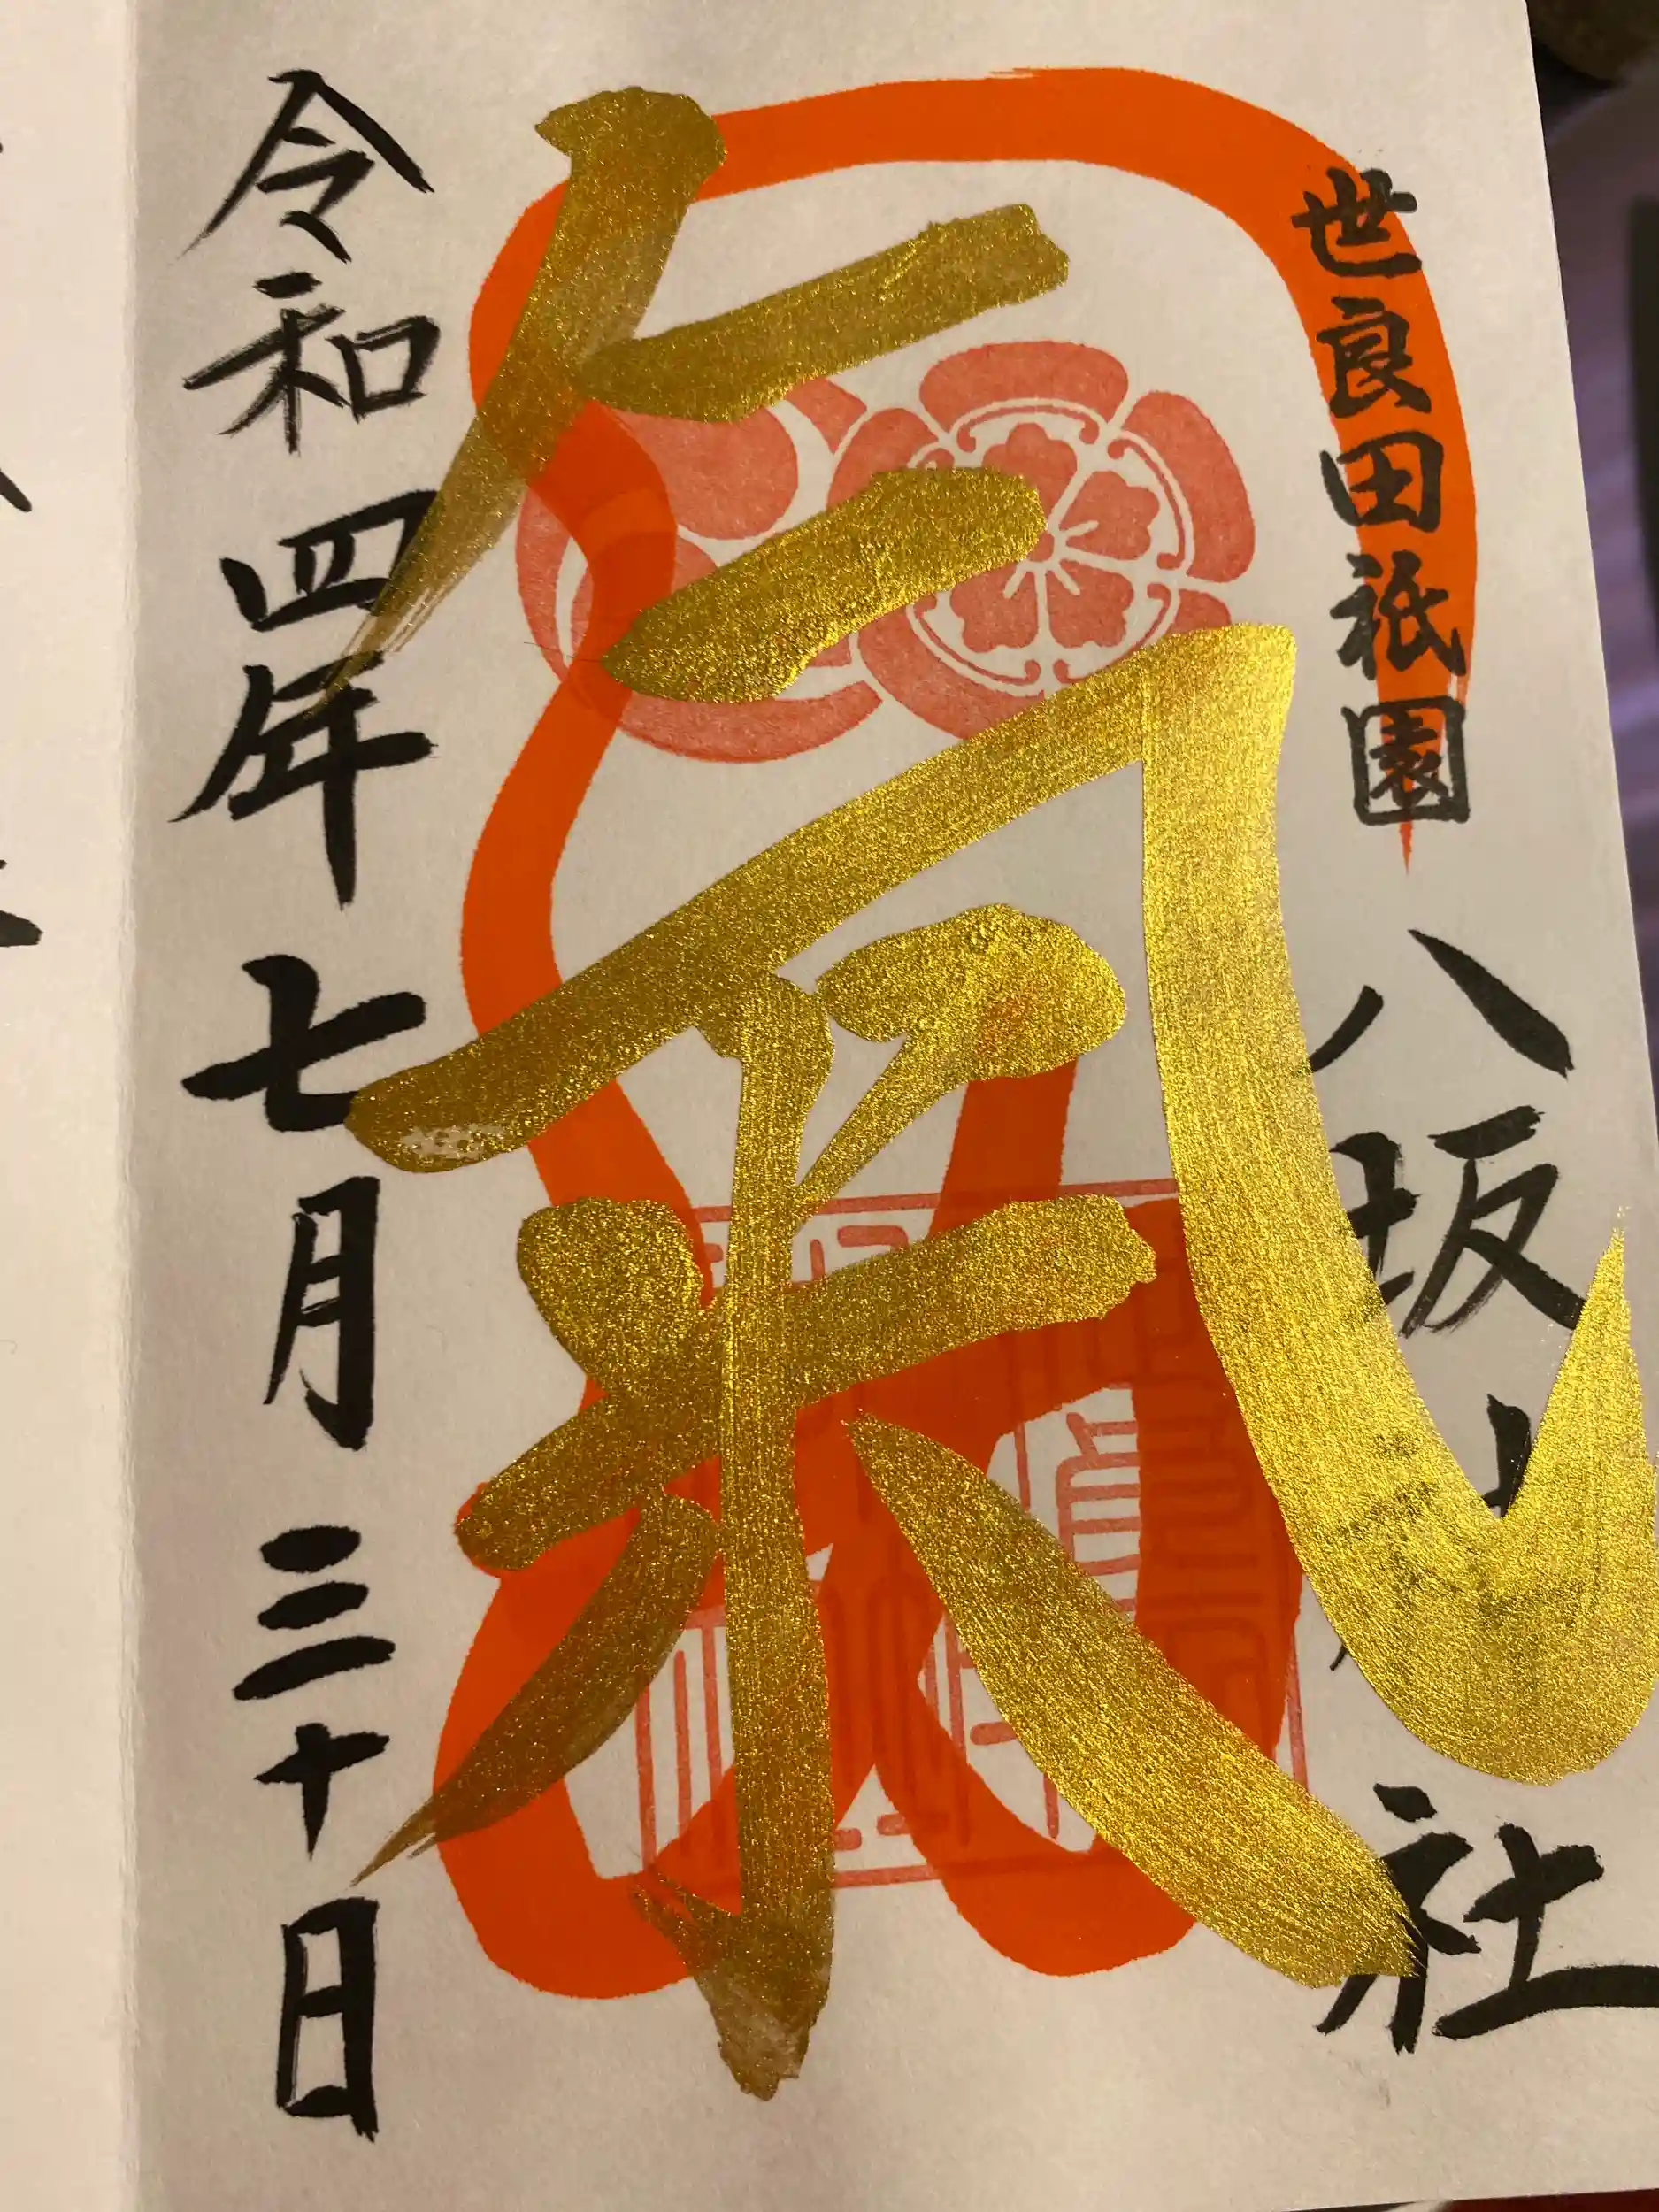 世良田祇園 八坂神社
氣
令和四年七月三十日